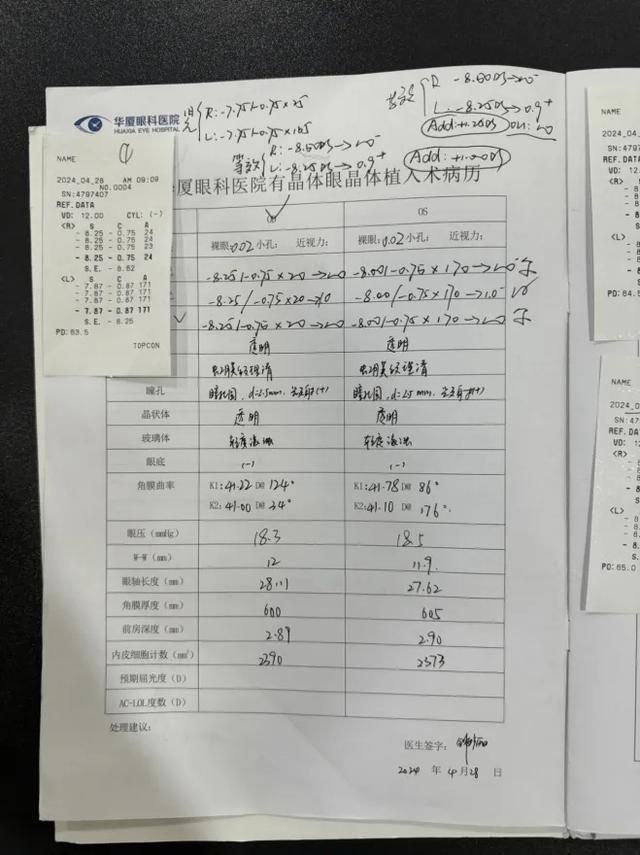 R: -7.75/-0.75×25
L: -7.75/-0.75×165
等效 R: -8.50DS→1.0-
L: -8.25DS→0.9+
R -8.50DS→1.0-
L: -8.25DS→0.9+
Add:+1.25DS OU: 1.0
Add:+1.00DS
华厦眼科医院
HUAXIA EYE HOSPITAL
厦眼科医院有晶体眼晶体植入术病历
NAME
2024_04_28 AM 09:09
NO.0004
SN:4797407
REF.DATA
VD: 12.00 CYL: (-)
<R> S C A
- 8.25 - 0.75 24
- 8.25 - 0.75 24
- 8.25 - 0.75 23
- 8.25 - 0.75 24
S.E. - 8.62
<L> S C A
- 7.87 - 0.87 171
- 7.87 - 0.87 171
- 7.87 - 0.87 171
- 7.87 - 0.87 171
S.E. - 8.25
PD: 63.5
TOPCON
OD OS
裸眼:0.02 小孔: 近视力: 裸眼:0.02 小孔: 近视力:
-8.25/-0.75×20→1.0 -8.00/-0.75×170→1.0
-8.25/-0.75×20→1.0 -8.00/-0.75×170→1.0-
-8.25/-0.75×20→1.0 -8.00/-0.75×170→1.0
透明 透明
虹膜纹理清 虹膜纹理清
瞳孔 瞳孔圆, d=2.5mm, 光反射(+) 瞳孔圆, d=2.5mm, 光反射(+)
晶状体 透明 透明
玻璃体 轻度混浊 轻度混浊
眼底 (-) (-)
角膜曲率 K1:41.22 D@ 124° K1:41.78 D@ 86°
K2:41.00 D@ 34° K2:41.10 D@ 176°
眼压 (mmHg) 18.3 18.5
W-W (mm) 12 11.9
眼轴长度 (mm) 28.11 27.62
角膜厚度 (mm) 600 605
前房深度 (mm) 2.89 2.90
内皮细胞计数 (mm²) 2390 2373
预期屈光度 (D)
AC-LOL度数 (D)
处理建议:
医生签字:
2024 年 4 月 28 日
NAME
2024_04
SN:4797
REF.DATA
VD: 12
<R>
<L>
PD: 64.5
NAME
2024_0
SN:47
REF.DA
VD: 12
<R>
<L>
PD: 65.0